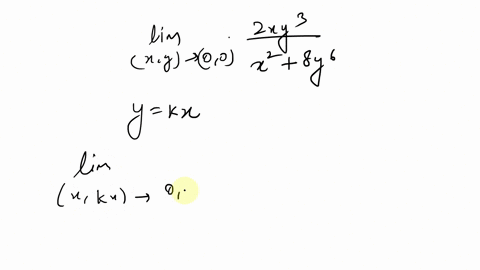 lim (x,y)→(0,0) · 2xy³ / x² + 8y⁶
y = kx
lim (x, kx) → 0,.